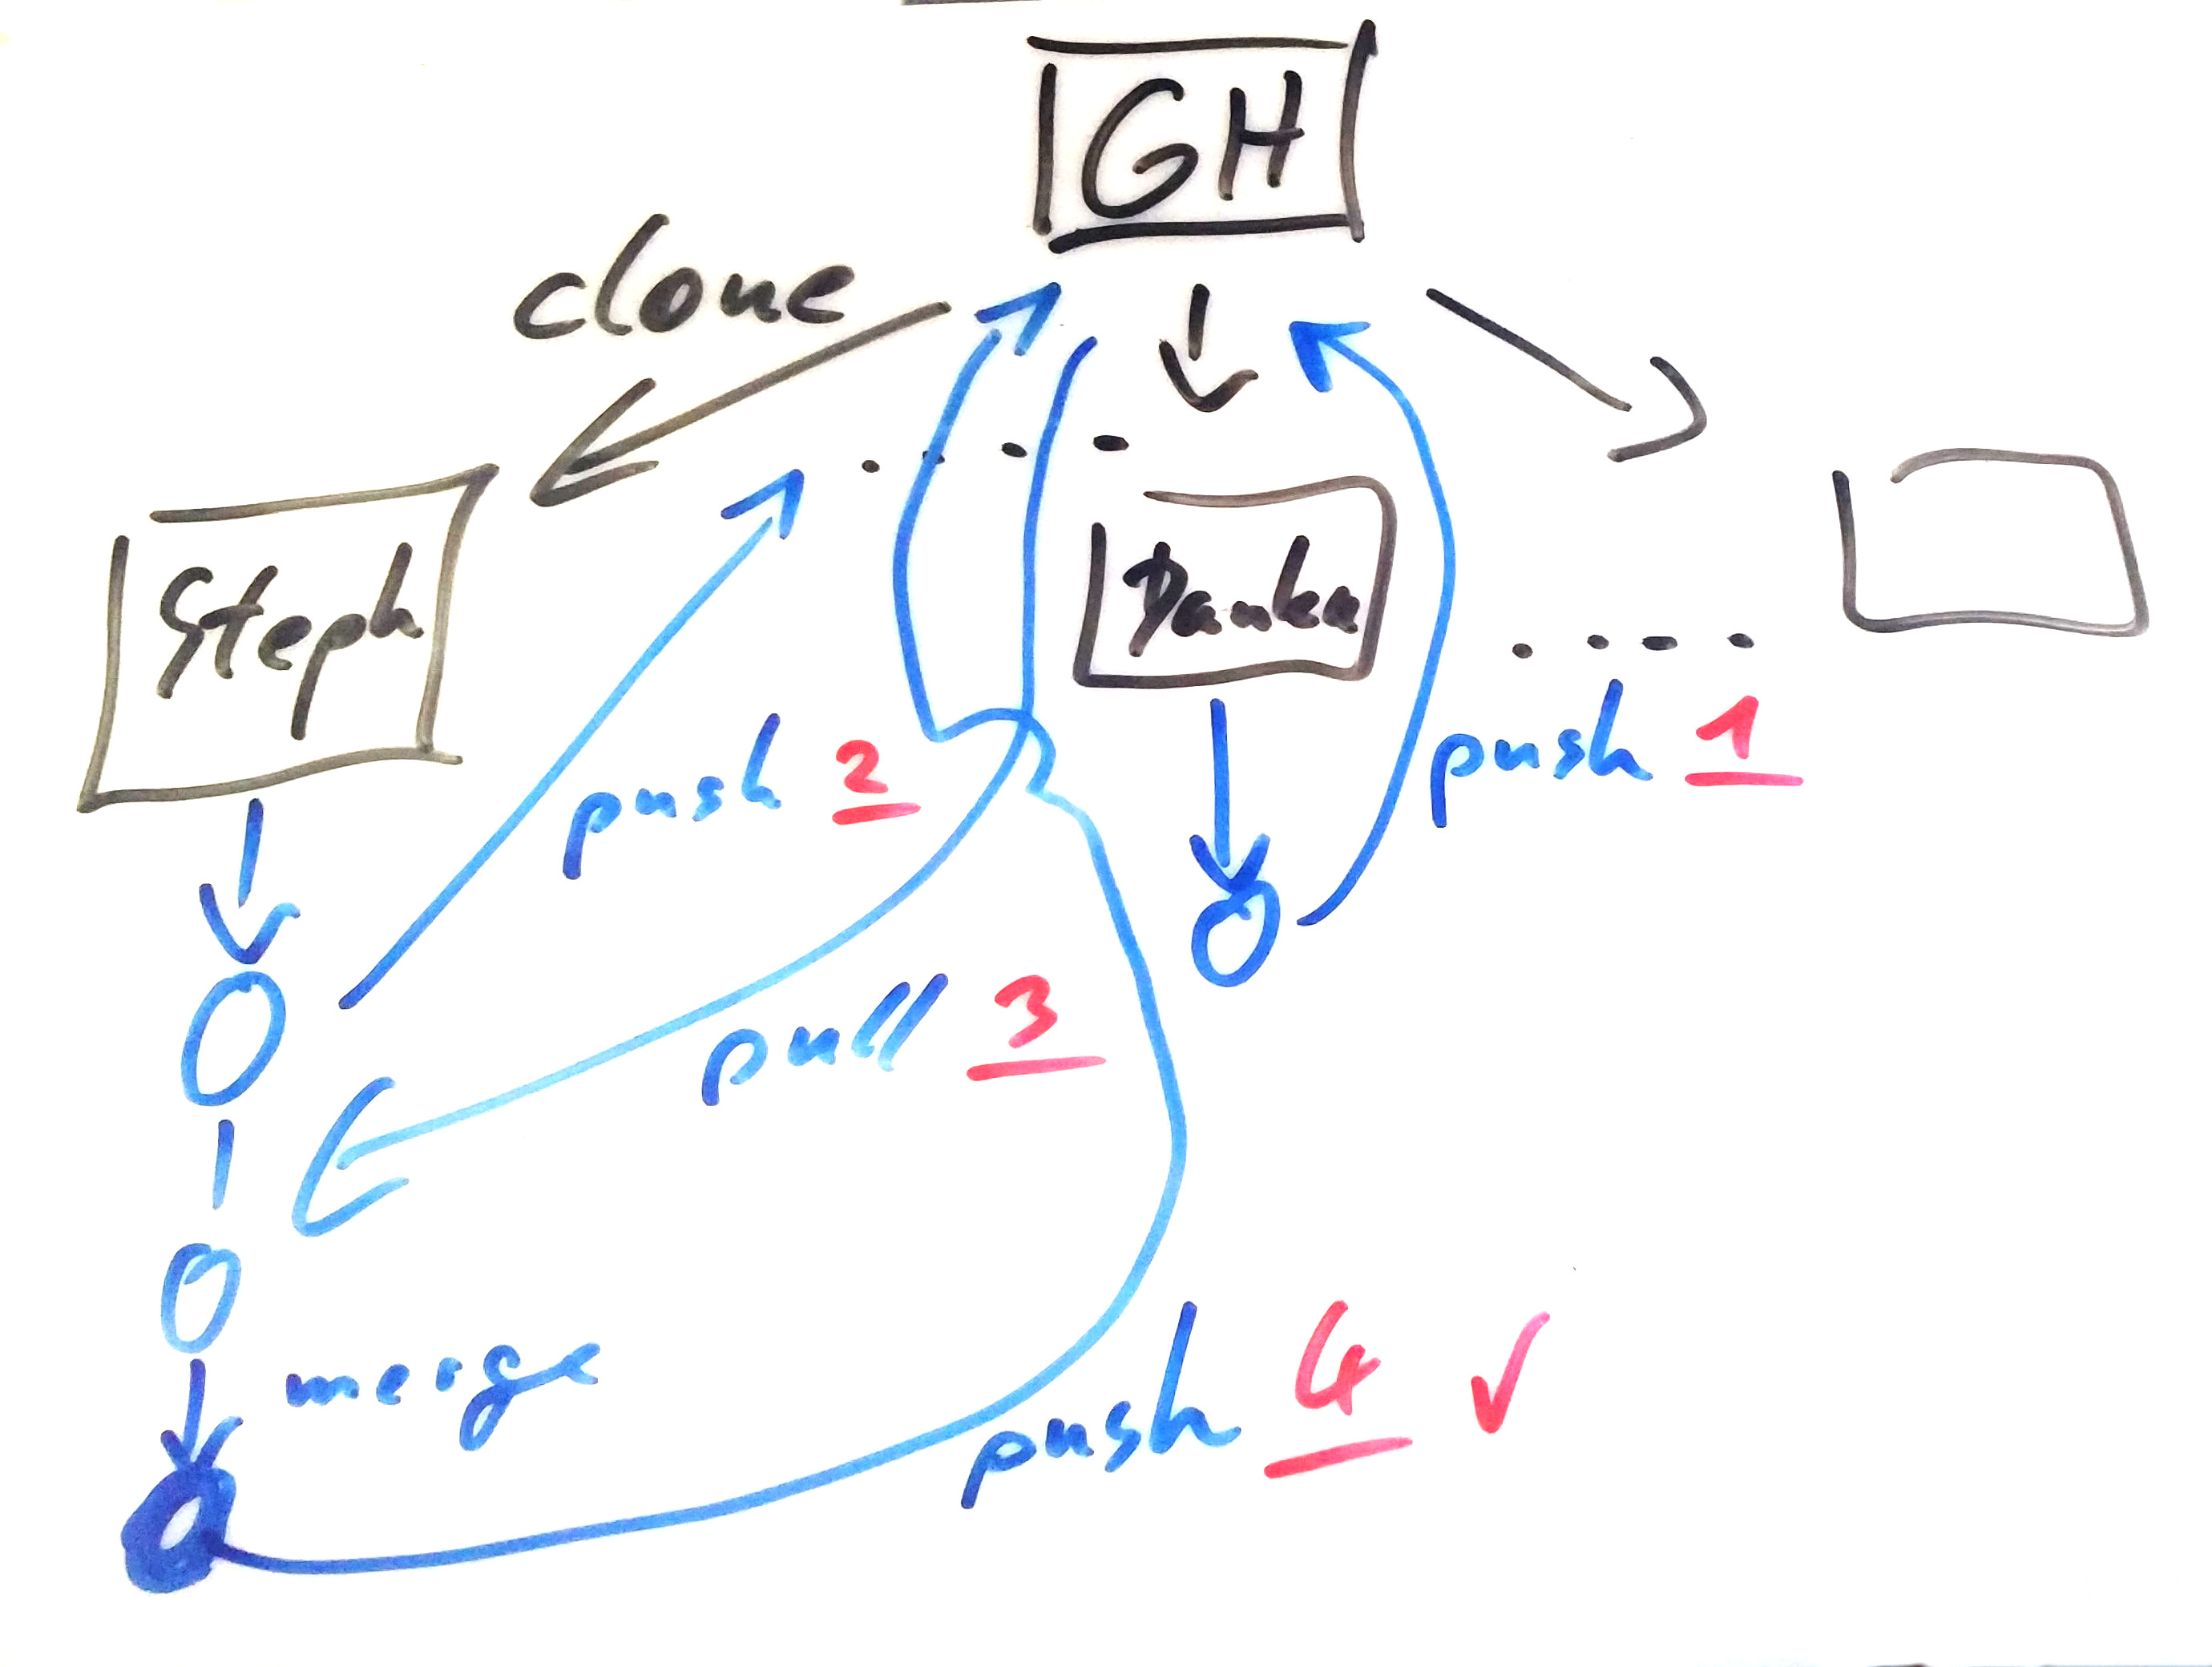 GH
clone
Steph
Danka
push 1
push 2
pull 3
merge
push 4 ✓